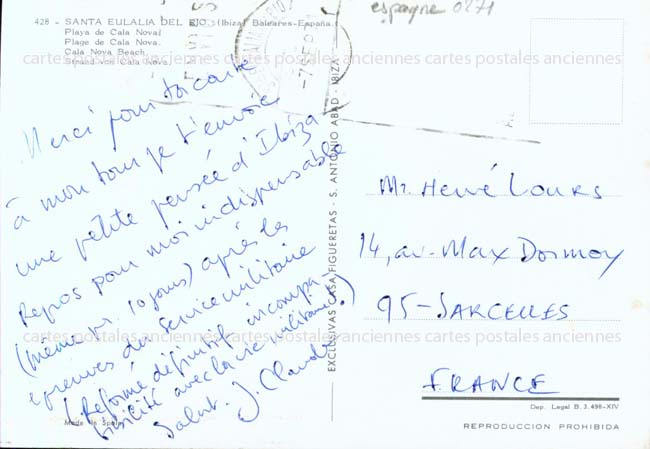 428 - SANTA EULALIA DEL RIO. (Ibiza) Baleares-España.
Playa de Cala Nova.
Plage de Cala Nova.
Cala Nova Beach.
Strand von Cala Nova.
espagne 0271
cartes postales anciennes cartes postales anciennes cartes postales anciennes
Merci pour ta carte
à mon tour je t'envoie
une petite pensée d'Ibiza.
Repos pour moi indispensable
(même pr. 10 jours) après les
épreuves du service militaire
(Réformé définitif, incompa-
tibilité avec la vie militaire!)
Salut. J. Claude
Made in Spain
EXCLUSIVAS CASA FIGUERETAS - S. ANTONIO ABAD - IBIZA
Mr. Hervé Lours
14, av. Max Dormoy
95 - SARCELLES
cartes postales anciennes cartes postales anciennes cartes postales anciennes
FRANCE
Dep. Legal B. 3.498-XIV
REPRODUCCION PROHIBIDA